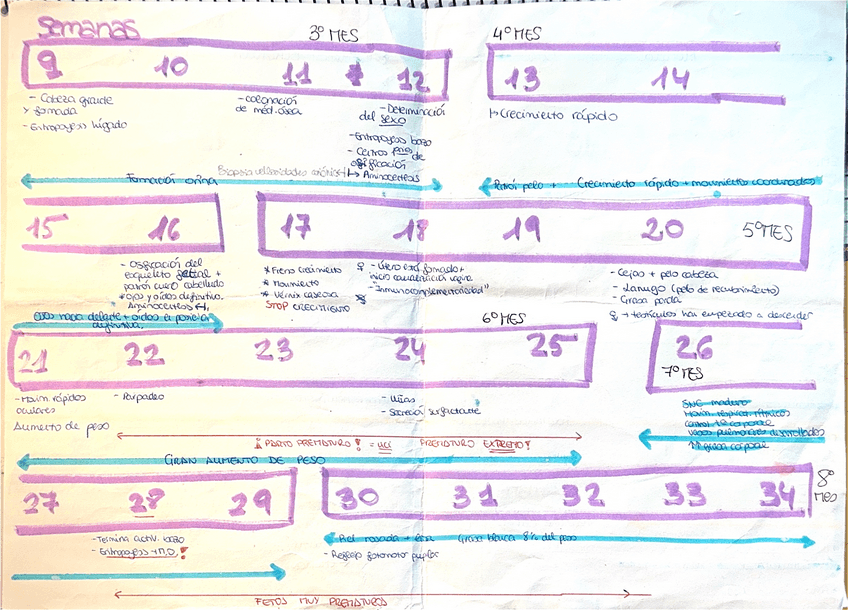 Semanas
3º MES
4º MES
9 10 11 12
13 14
- Cabeza grande
y formada
- Eritropoyesis hígado
- colonización
de méd. ósea
- Determinación
del sexo
- Eritropoyesis bazo
- Centros de
osificación
Aminocentesis
→ Crecimiento rápido
Formación orina
Biopsia vellosidades
Patrón pelo + Crecimiento rápido + movimiento coordinados
15 16
17 18 19 20 5º MES
- Osificación del
esqueleto fetal +
patrón cuero cabelludo
* ojos y oídos definitiva
Aminocentesis
* Freno crecimiento
* Movimiento
* Vérnix caseosa
STOP CRECIMIENTO
♀ - Útero está formado +
inicio canalización vagina
- "Inmunocomplementariedad"
- Cejas + pelo cabeza
- Lanugo (pelo de recubrimiento)
- Grasa parda
→ testículos han empezado a descender
Ojos hacia delante + oídos a posición
definitiva
6º MES
21 22 23 24 25
26
7º MES
- Movim. rápidos
oculares
- Parpadeo
- Uñas
- Secreción surfactante
Aumento de peso
SNC maduro
Movim. respirat. rítmicos
control tª corporal
vasos pulmonares desarrollados
↑↑ grasa corporal
¡PARTO PREMATURO! = UCI PREMATURO EXTREMO!
GRAN AUMENTO DE PESO
27 28 29
30 31 32 33 34
8º
MES
- Termina activ. bazo
- Eritropoyesis → M.O.!
Piel rosada + lisa Grasa blanca 8% del peso
- Reflejo fotomotor pupilar
FETOS MUY PREMATUROS